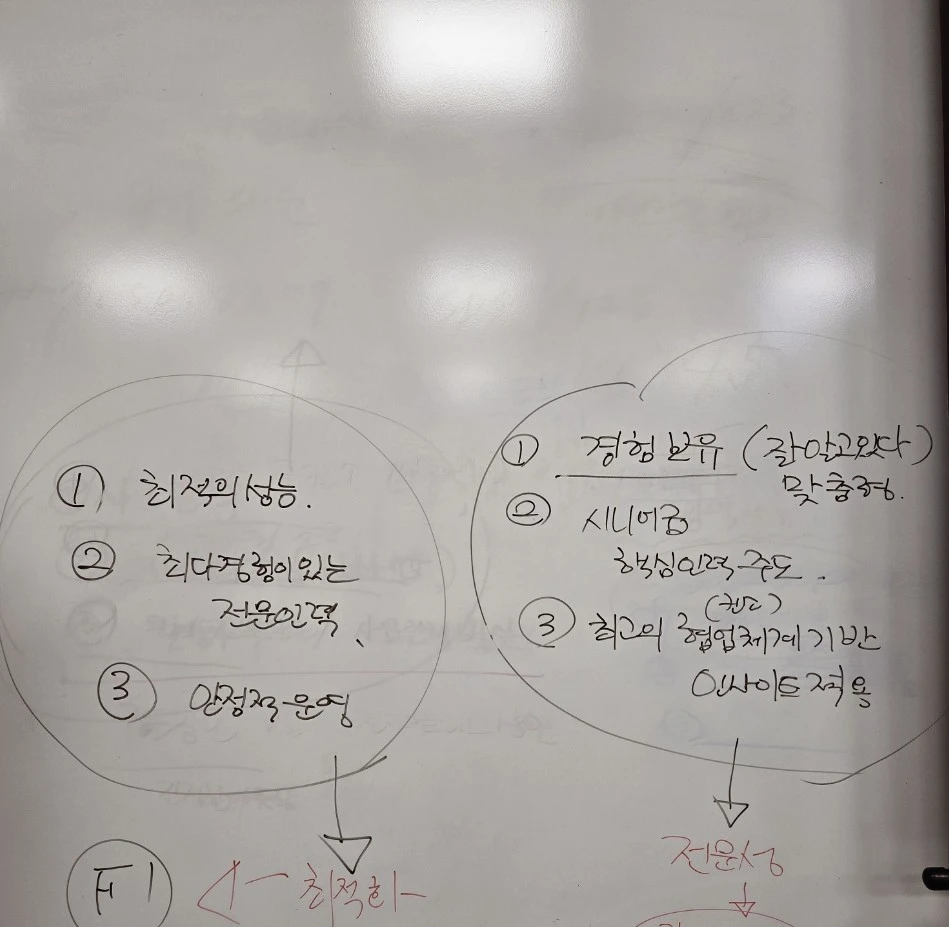 ① 최적의 성능.
② 최다경험이 있는
전문인력
③ 안정적 운영
F1
최적화
① 경험 보유 (잘 알고있다)
맞춤형.
② 시니어급
핵심인력 주도.
③ 최고의 협업체계 기반
인사이트 적용
전문성